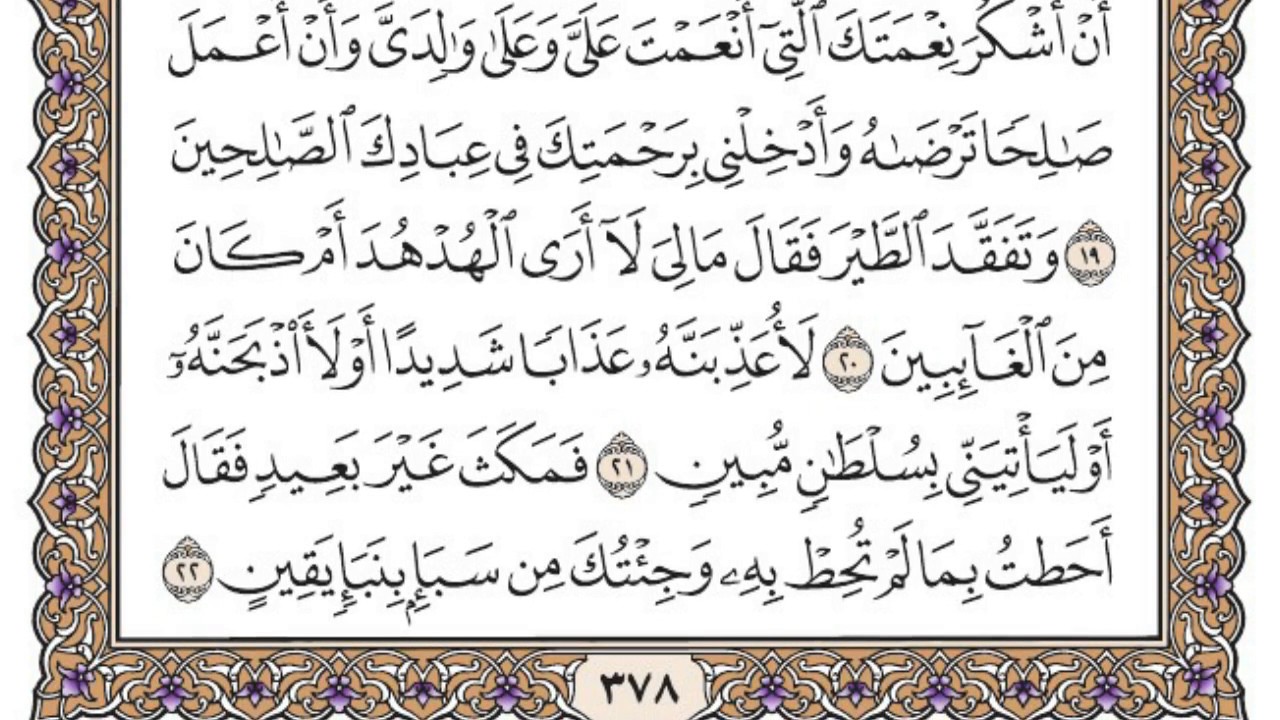 أَنْ أَشْكُرَ نِعْمَتَكَ ٱلَّتِىٓ أَنْعَمْتَ عَلَىَّ وَعَلَىٰ وَٰلِدَىَّ وَأَنْ أَعْمَلَ
صَٰلِحًا تَرْضَىٰهُ وَأَدْخِلْنِى بِرَحْمَتِكَ فِى عِبَادِكَ ٱلصَّٰلِحِينَ
١٩ وَتَفَقَّدَ ٱلطَّيْرَ فَقَالَ مَا لِىَ لَآ أَرَى ٱلْهُدْهُدَ أَمْ كَانَ
مِنَ ٱلْغَآئِبِينَ ٢٠ لَأُعَذِّبَنَّهُۥ عَذَابًا شَدِيدًا أَوْ لَأَا۟ذْبَحَنَّهُۥٓ
أَوْ لَيَأْتِيَنِّى بِسُلْطَٰنٍ مُّبِينٍ ٢١ فَمَكَثَ غَيْرَ بَعِيدٍ فَقَالَ
أَحَطتُ بِمَا لَمْ تُحِطْ بِهِۦ وَجِئْتُكَ مِن سَبَإٍۭ بِنَبَإٍ يَقِينٍ ٢٢
٣٧٨